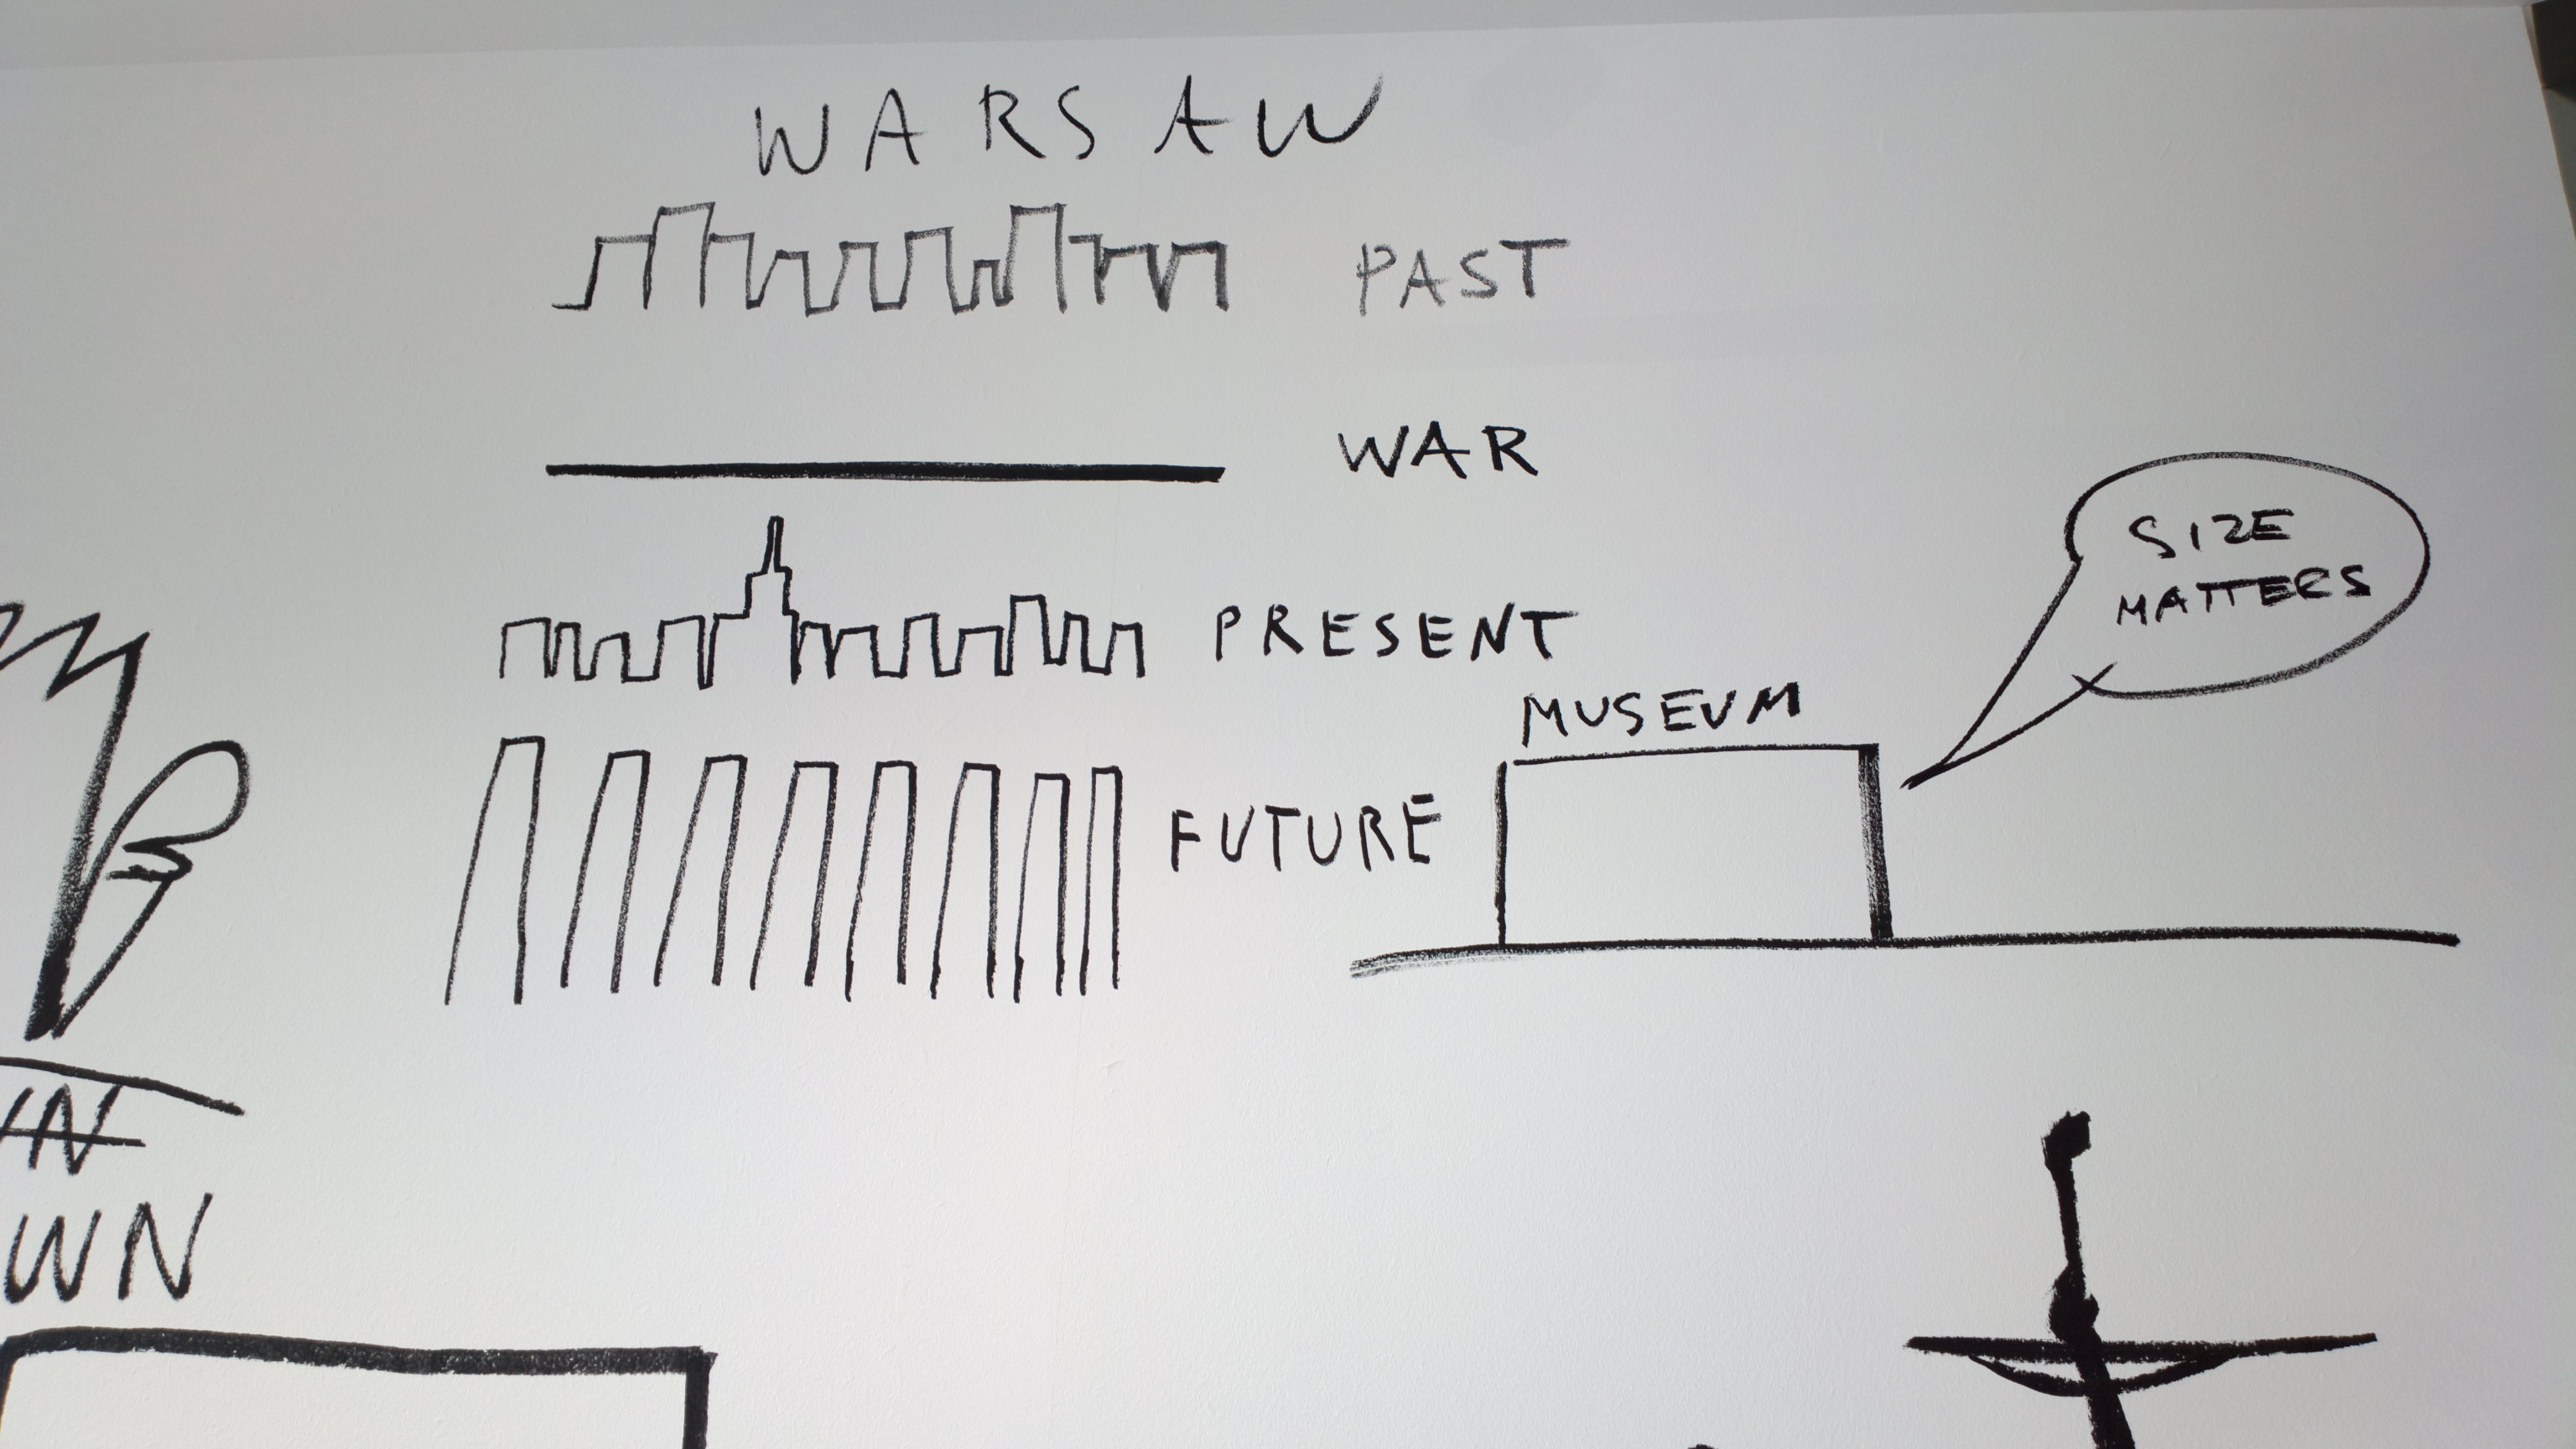 WARSAW
PAST
WAR
PRESENT
FUTURE
MUSEUM
SIZE
MATTERS
WN